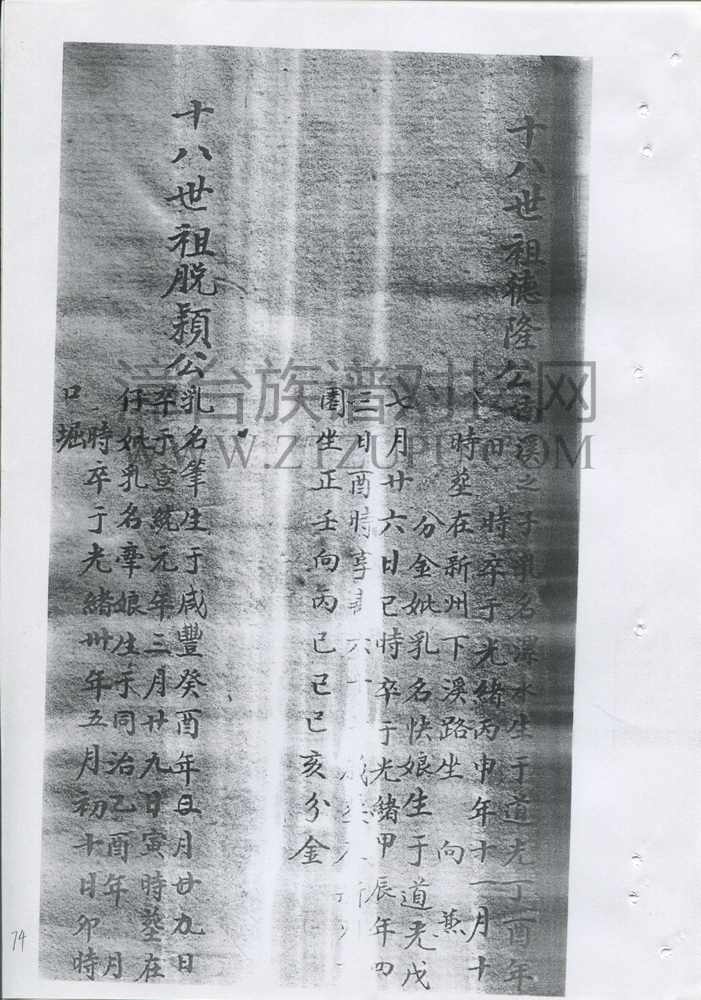 十八世祖德隆公
溪之子乳名深水生于道光丁酉年
時卒于光緒丙申年十一月十
時塟在新州下溪路坐 向 兼
分金妣乳名快娘生于道光戊
七月廿六日巳時卒于光緒甲辰年四
三日酉時享壽六十
園坐正壬向丙己巳己亥分金
十八世祖脱穎公
乳名筆生于咸豐癸酉年 月廿九日
卒于宣統元年三月廿九日寅時塟在
仔妣乳名 娘生于同治乙酉年 月
時卒于光緒卅年五月初十日卯時
口堀
漳台族谱对接网
WWW.ZTZUPU.COM
74